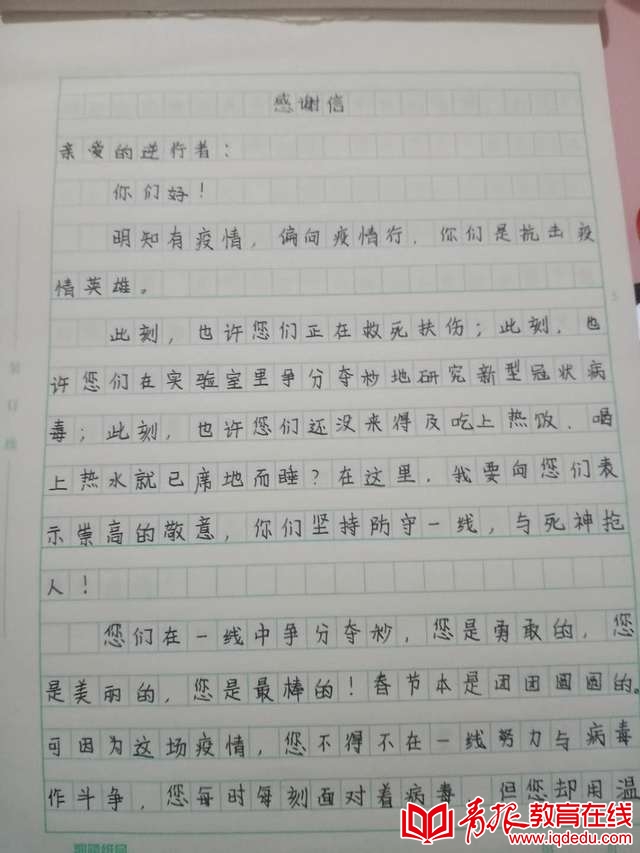 感谢信
亲爱的逆行者：
你们好！
明知有疫情，偏向疫情行，你们是抗击疫
情英雄。
此刻，也许您们正在救死扶伤；此刻，也
许您们在实验室里争分夺秒地研究新型冠状病
毒；此刻，也许您们还没来得及吃上热饭、喝
上热水就已席地而睡？在这里，我要向您们表
示崇高的敬意，你们坚持防守一线，与死神抢
人！
您们在一线中争分夺秒，您是勇敢的，您
是美丽的，您是最棒的！春节本是团团圆圆的。
可因为这场疫情，您不得不在一线努力与病毒
作斗争，您每时每刻面对着病毒，但您却用温
青报教育在线
www.iqdedu.com
装订线